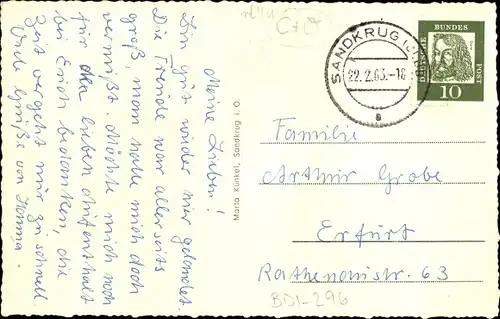 Meine Lieben!
Bin gut wieder hier gelandet.
Die Freude war allerseits
groß, man hatte mich doch
vermißt. Möchte mich noch
für den lieben Aufenthalt
bei Euch bedanken, die
Zeit vergeht nur zu schnell.
Viele Grüße von Hanna.
Marta Klinkel, Sandkrug i. O.
SANDKRUG
22.2.63.-18
a
DEUTSCHE
BUNDES
POST
10
Familie
Arthur Grobe
Erfurt
Rathenaustr. 63
BD1-296